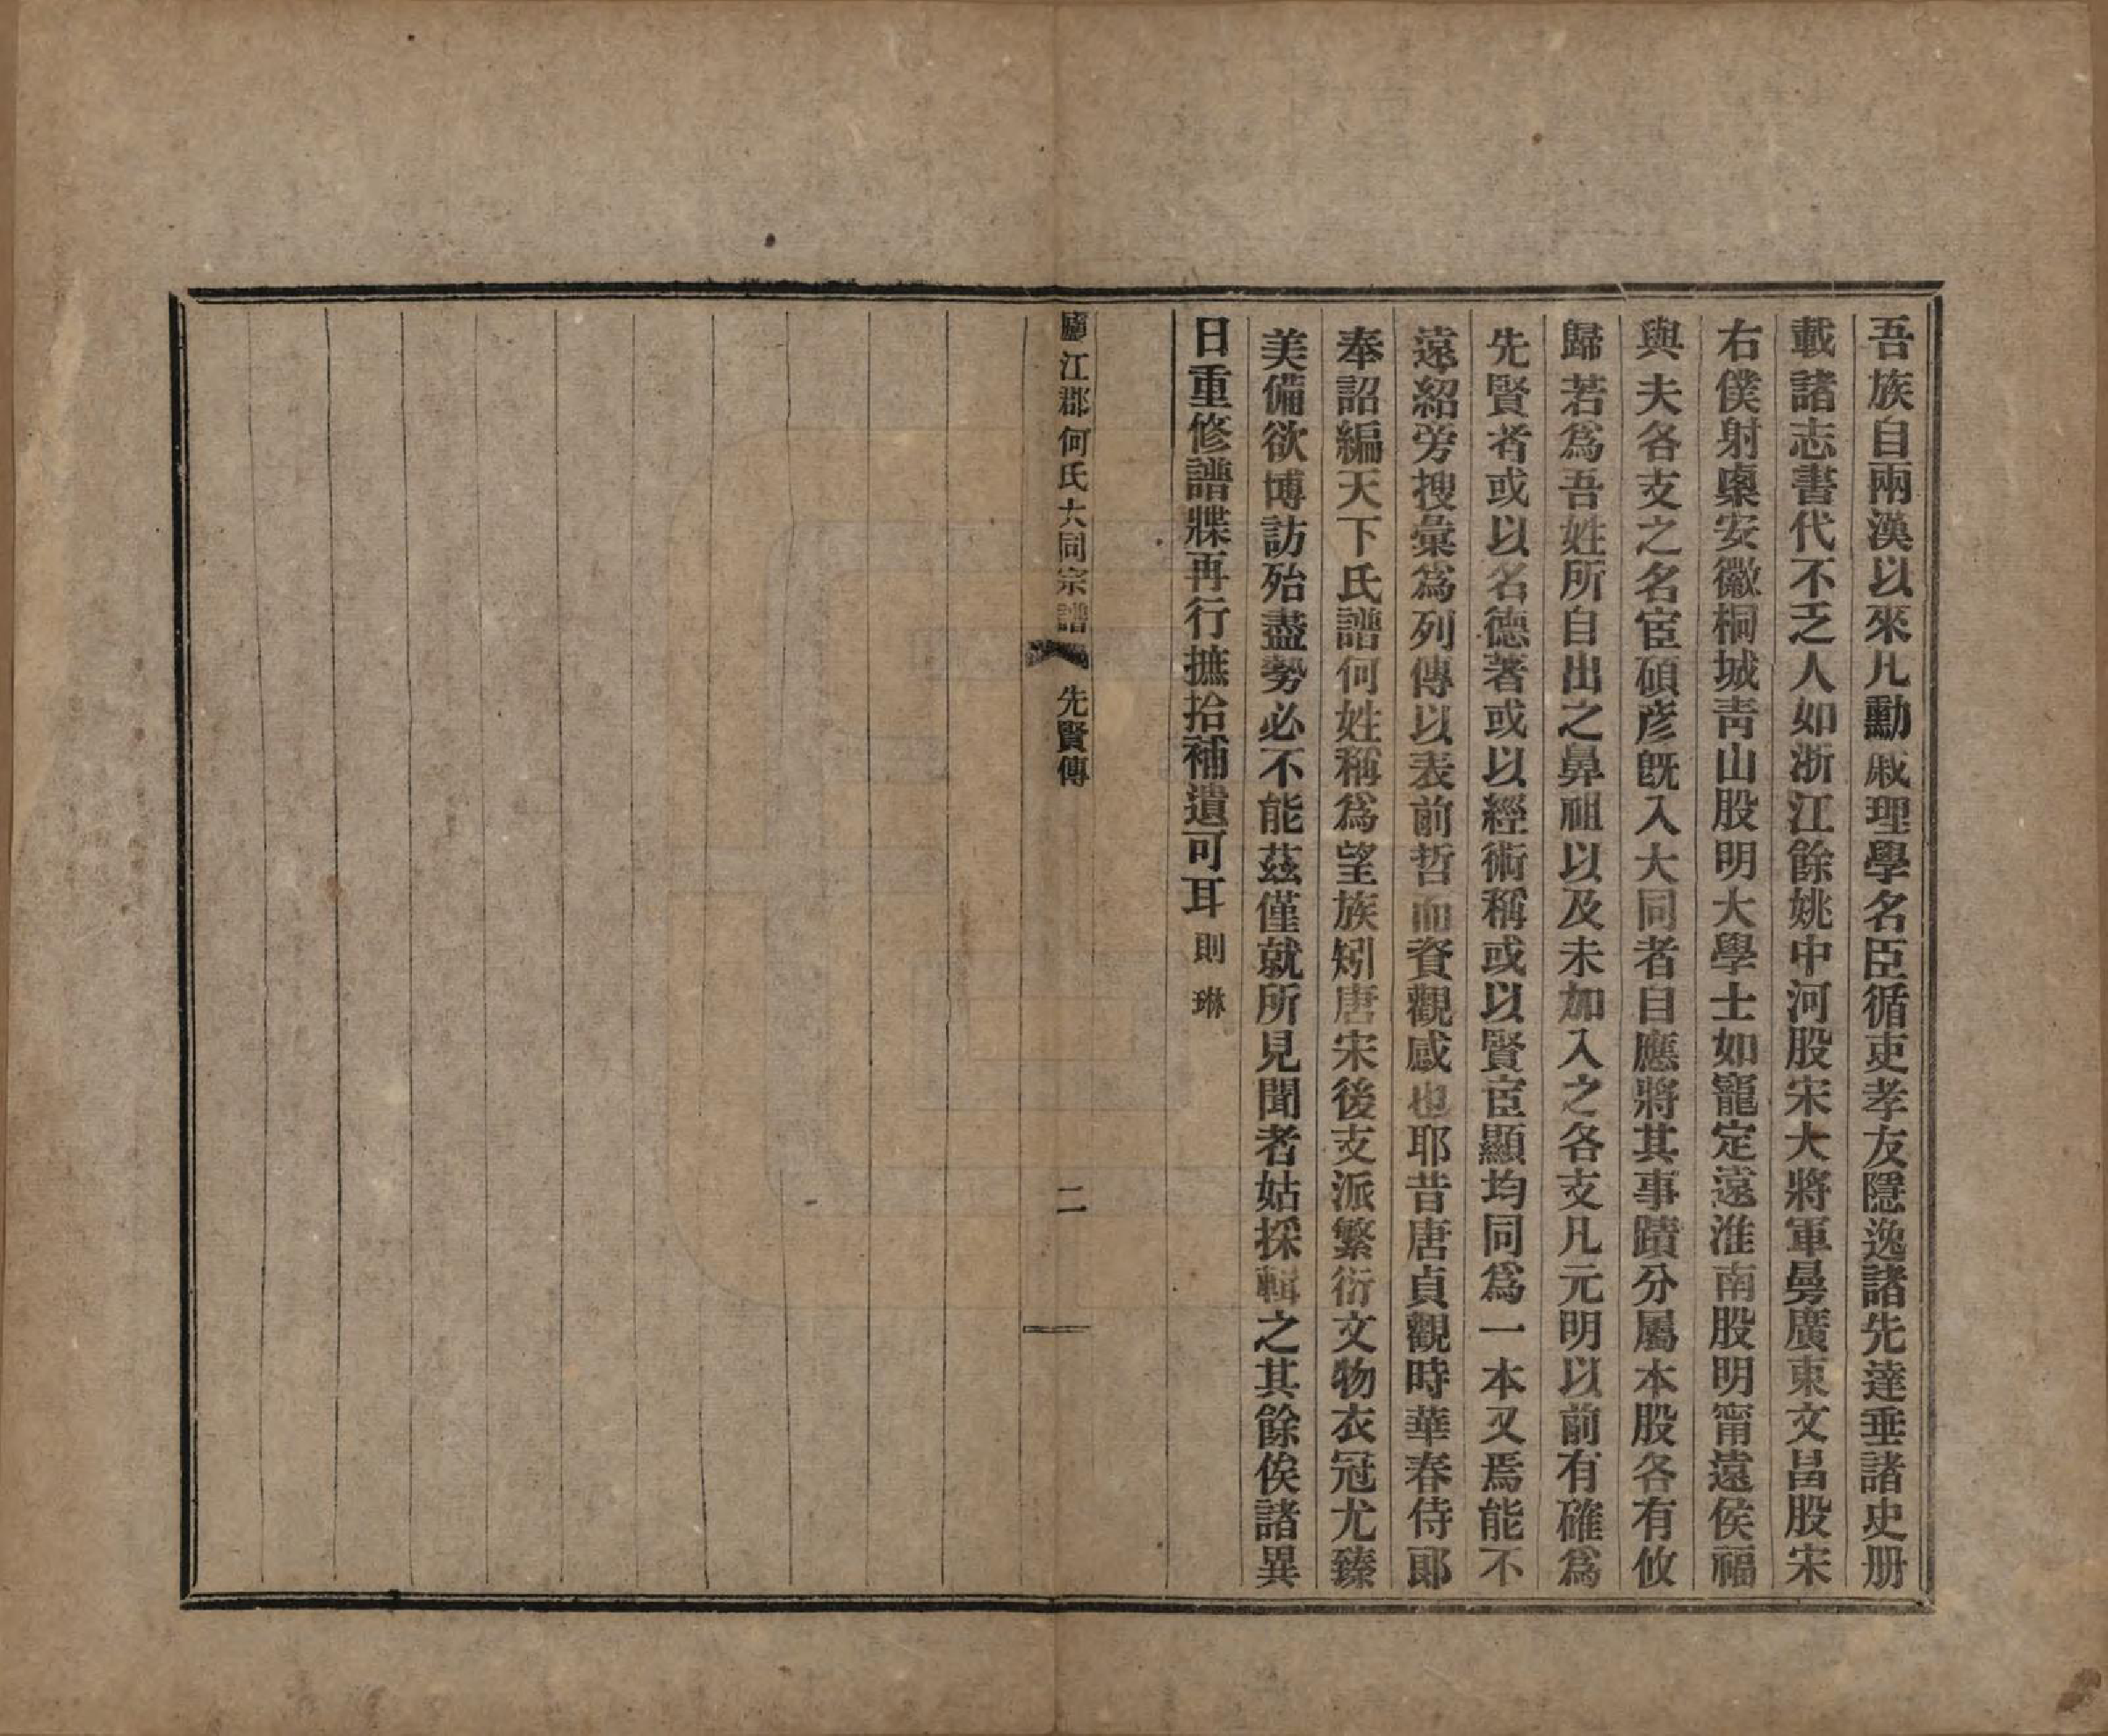 吾族自兩漢以來凡勳戚理學名臣循吏孝友隱逸諸先達垂諸史册
載諸志書代不乏人如浙江餘姚中河股宋大將軍曼廣東文昌股宋
右僕射㮚安徽桐城靑山股明大學士如寵定遠淮南股明甯遠侯福
與夫各支之名宦碩彥旣入大同者自應將其事蹟分屬本股各有攸
歸若爲吾姓所自出之鼻祖以及未加入之各支凡元明以前有確爲
先賢者或以名德著或以經術稱或以賢宦顯均同爲一本又焉能不
遠紹旁搜彙爲列傳以表前哲而資觀感也耶昔唐貞觀時華春侍郞
奉詔編天下氏譜何姓稱爲望族矧唐宋後支派繁衍文物衣冠尤臻
美備欲博訪殆盡勢必不能茲僅就所見聞者姑採輯之其餘俟諸異
日重修譜牒再行摭拾補遺可耳 則琳
廬江郡何氏大同宗譜 先賢傳 二